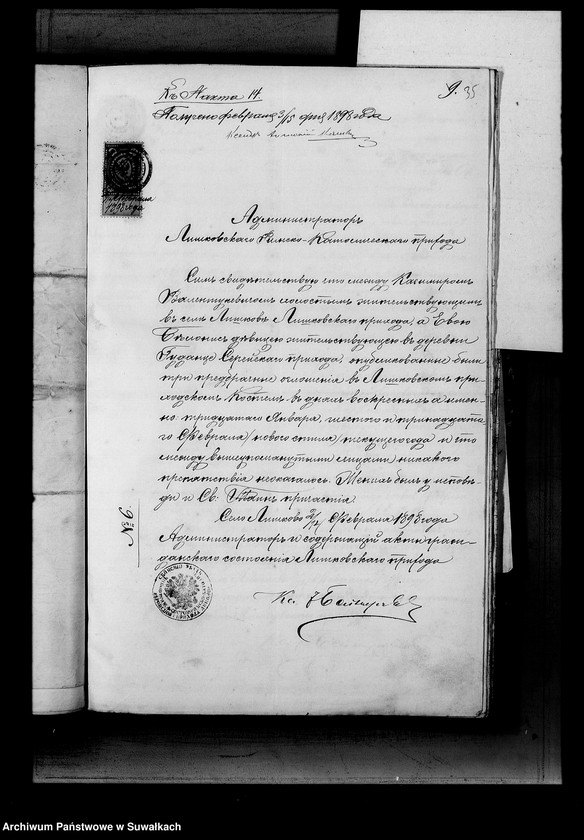 Къ Акта 14.
9. 35
Получено февраля 3/15 дня 1898 года
1898 года
Администраторъ
Лишковскаго Римско-Католическаго прихода
Симъ свидѣтельствую что между Казимиромъ
Валентукевичемъ холостымъ жительствующимъ
въ селѣ Лишковѣ Лишковскаго прихода, а Евою
дѣвицею жительствующею въ деревни
Серейскаго прихода, опубликованные были
три предбрачные оглошенія въ Лишковскомъ при-
ходскомъ Костелѣ въ дняхъ воскресныхъ а имен-
но: тридцатаго Января, шестого и тринадцата-
го Февраля (новаго стиля) текущаго года и что
между вышеупомянутыми лицами никакого
препятствія неоказалось. Женихъ былъ у исповѣ-
ди и Св: Таинъ причастія.
Село Лишково 2/14 Февраля 1898 года
Администраторъ и содержащій акты граж-
данскаго состоянія Лишковскаго прихода
№ 6.
Кс.
Archiwum Państwowe w Suwałkach